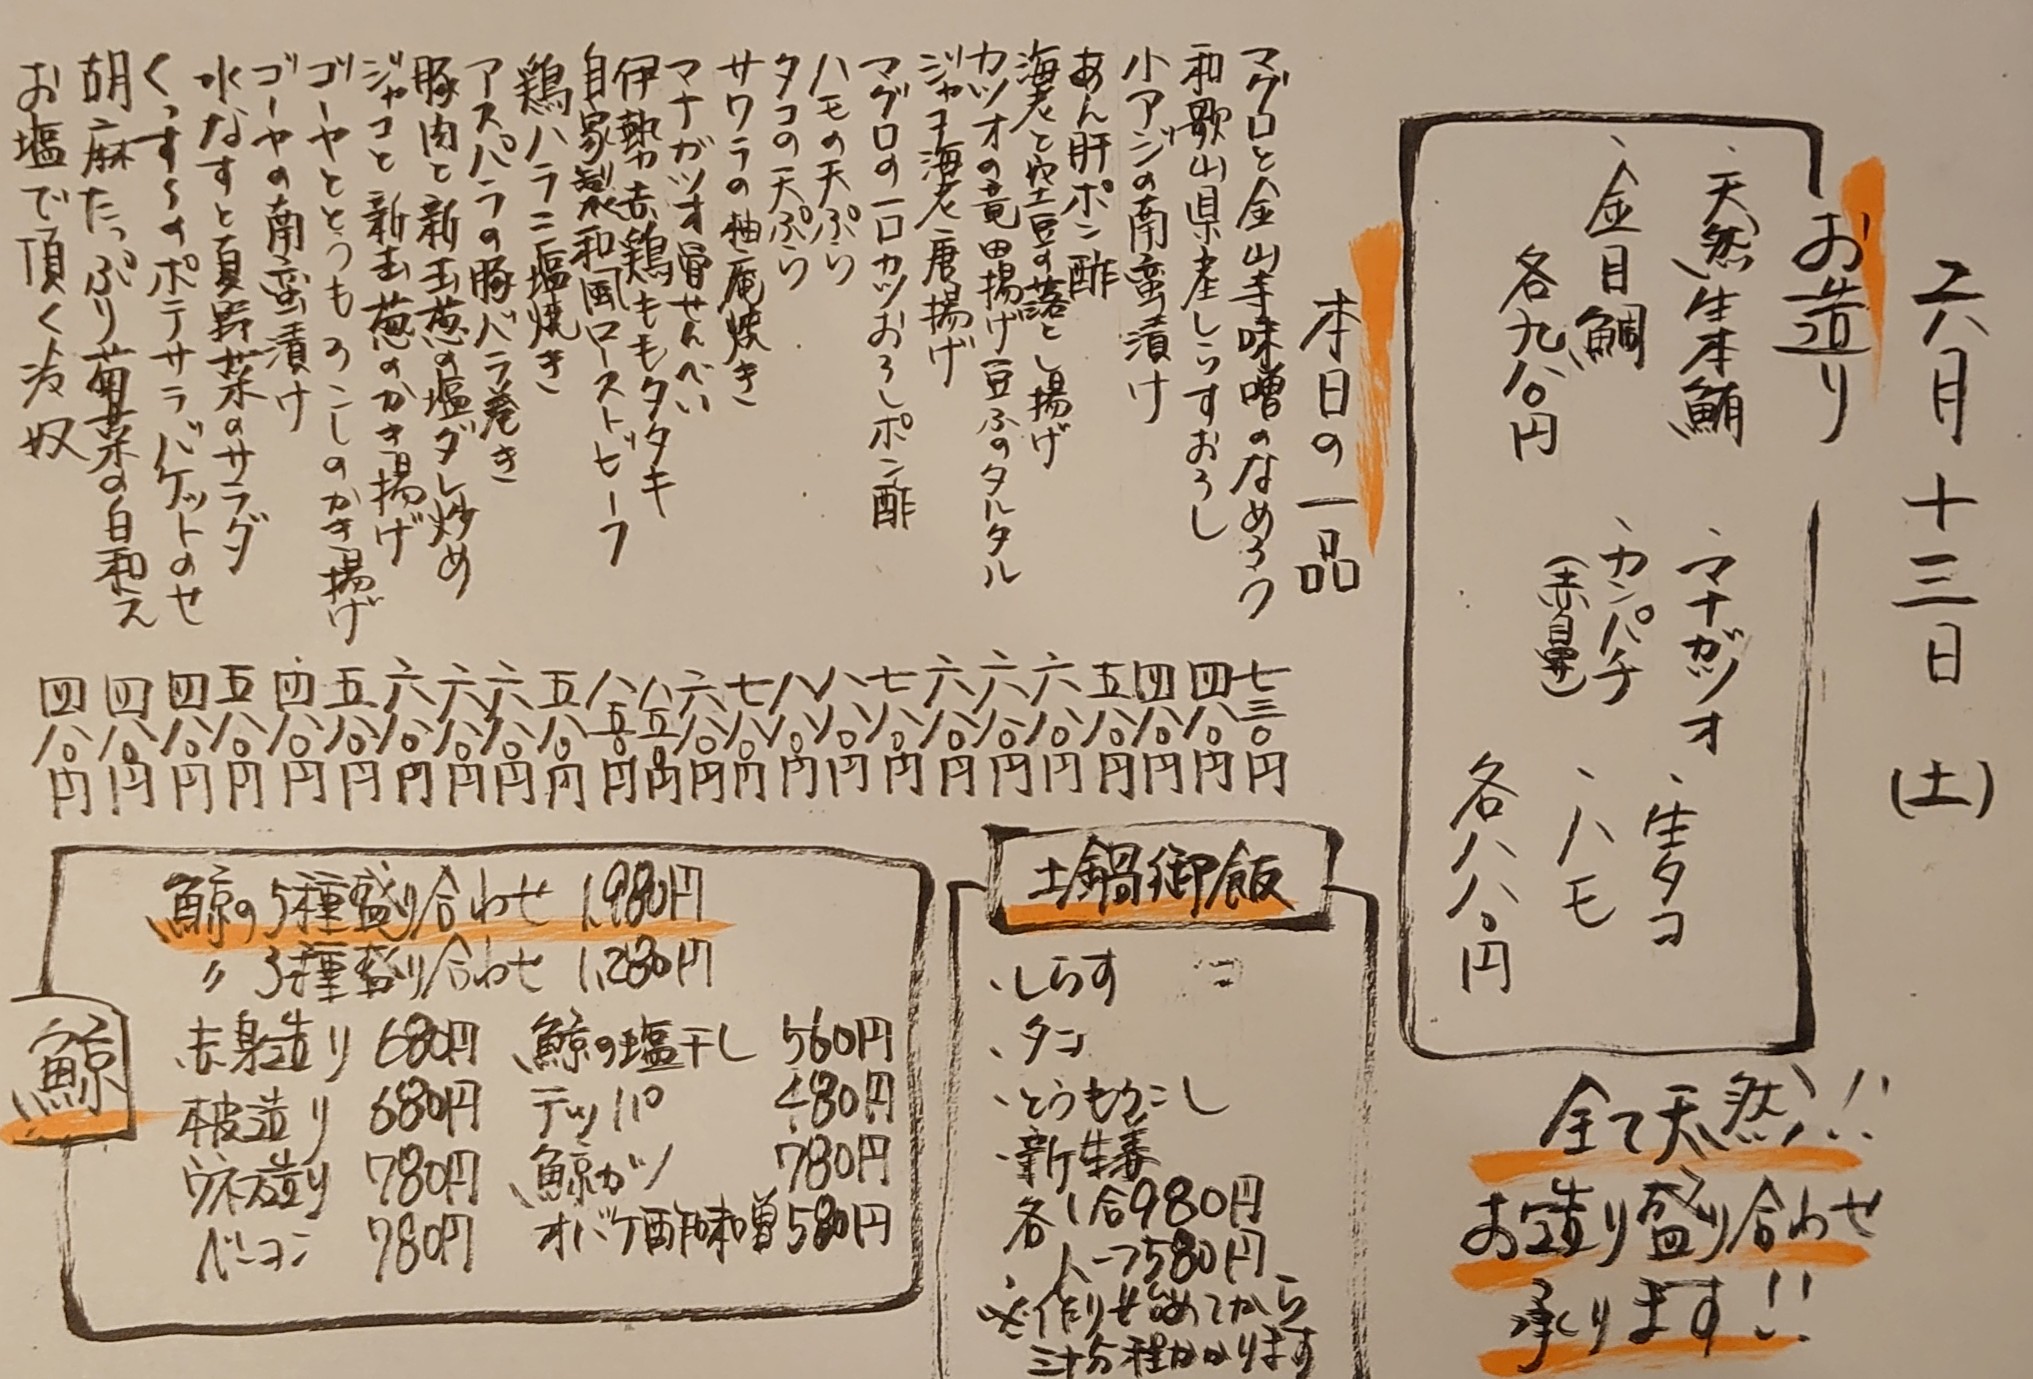 六月十三日(土)
お造り
、天然生本鮪
、金目鯛
各九八〇円
、マナガツオ
、カンパチ
(赤鼻)
、生タコ
、ハモ
各八八〇円
全て天然!!
お造り盛り合わせ
承ります!!
本日の一品
マグロと金山寺味噌のなめろう 七三〇円
和歌山県産しらすおろし 四八〇円
小アジの南蛮漬け 四八〇円
あん肝ポン酢 五八〇円
海老と空豆の落とし揚げ 六八〇円
カツオの竜田揚げ豆ふのタルタル 六八〇円
ジャコ海老唐揚げ 六八〇円
マグロの一口カツおろしポン酢 七八〇円
ハモの天ぷら 八八〇円
タコの天ぷら 八八〇円
サワラの柚庵焼き 七八〇円
マナガツオ骨せんべい 六八〇円
伊勢赤鶏ももタタキ 八五〇円
自家製和風ローストビーフ 八五〇円
鶏ハラミ塩焼き 五八〇円
アスパラの豚バラ巻き 六八〇円
豚肉と新玉葱の塩ダレ炒め 六八〇円
ジャコと新玉葱のかき揚げ 六八〇円
ゴーヤととうもろこしのかき揚げ 五八〇円
ゴーヤの南蛮漬け 四八〇円
水なすと夏野菜のサラダ 五八〇円
くっすぅのポテサラバケットのせ 四八〇円
胡麻たっぷり菊菜の白和え 四八〇円
お塩で頂く冷奴 四八〇円
土鍋御飯
、しらす
、タコ
、とうもろこし
、新生姜
各1合980円
ハーフ580円
※作り始めてから
三十分程かかります
鯨
鯨の5種盛り合わせ 1,980円
〃 3種盛り合わせ 1,280円
赤身造り 680円 鯨の塩干し 560円
本皮造り 680円 テッパ 480円
ウネ造り 780円 鯨カツ 780円
ベーコン 780円 オバケ酢味噌 580円